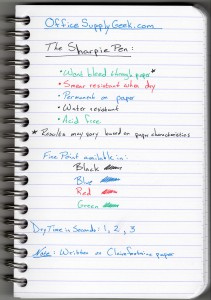 OfficeSupplyGeek.com
The Sharpie Pen:
• Wont bleed through paper *
• Smear resistant when dry
• Permanent on paper
• Water resistant
• Acid free
* Results may vary based on page characteristics
Fine Point available in:
Black
Blue
Red
Green
Dry Time in Seconds: 1, 2, 3
Note: Written on Clairefontaine paper